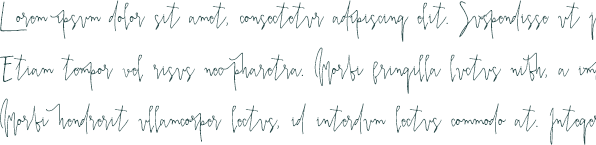 Lorem ipsum dolor sit amet, consectetur adipiscing elit. Suspendisse ut
Etiam tempor vel risus nec pharetra. Morbi fringilla luctus nibh, a
Morbi hendrerit ullamcorper lectus, id interdum lectus commodo at. Integer